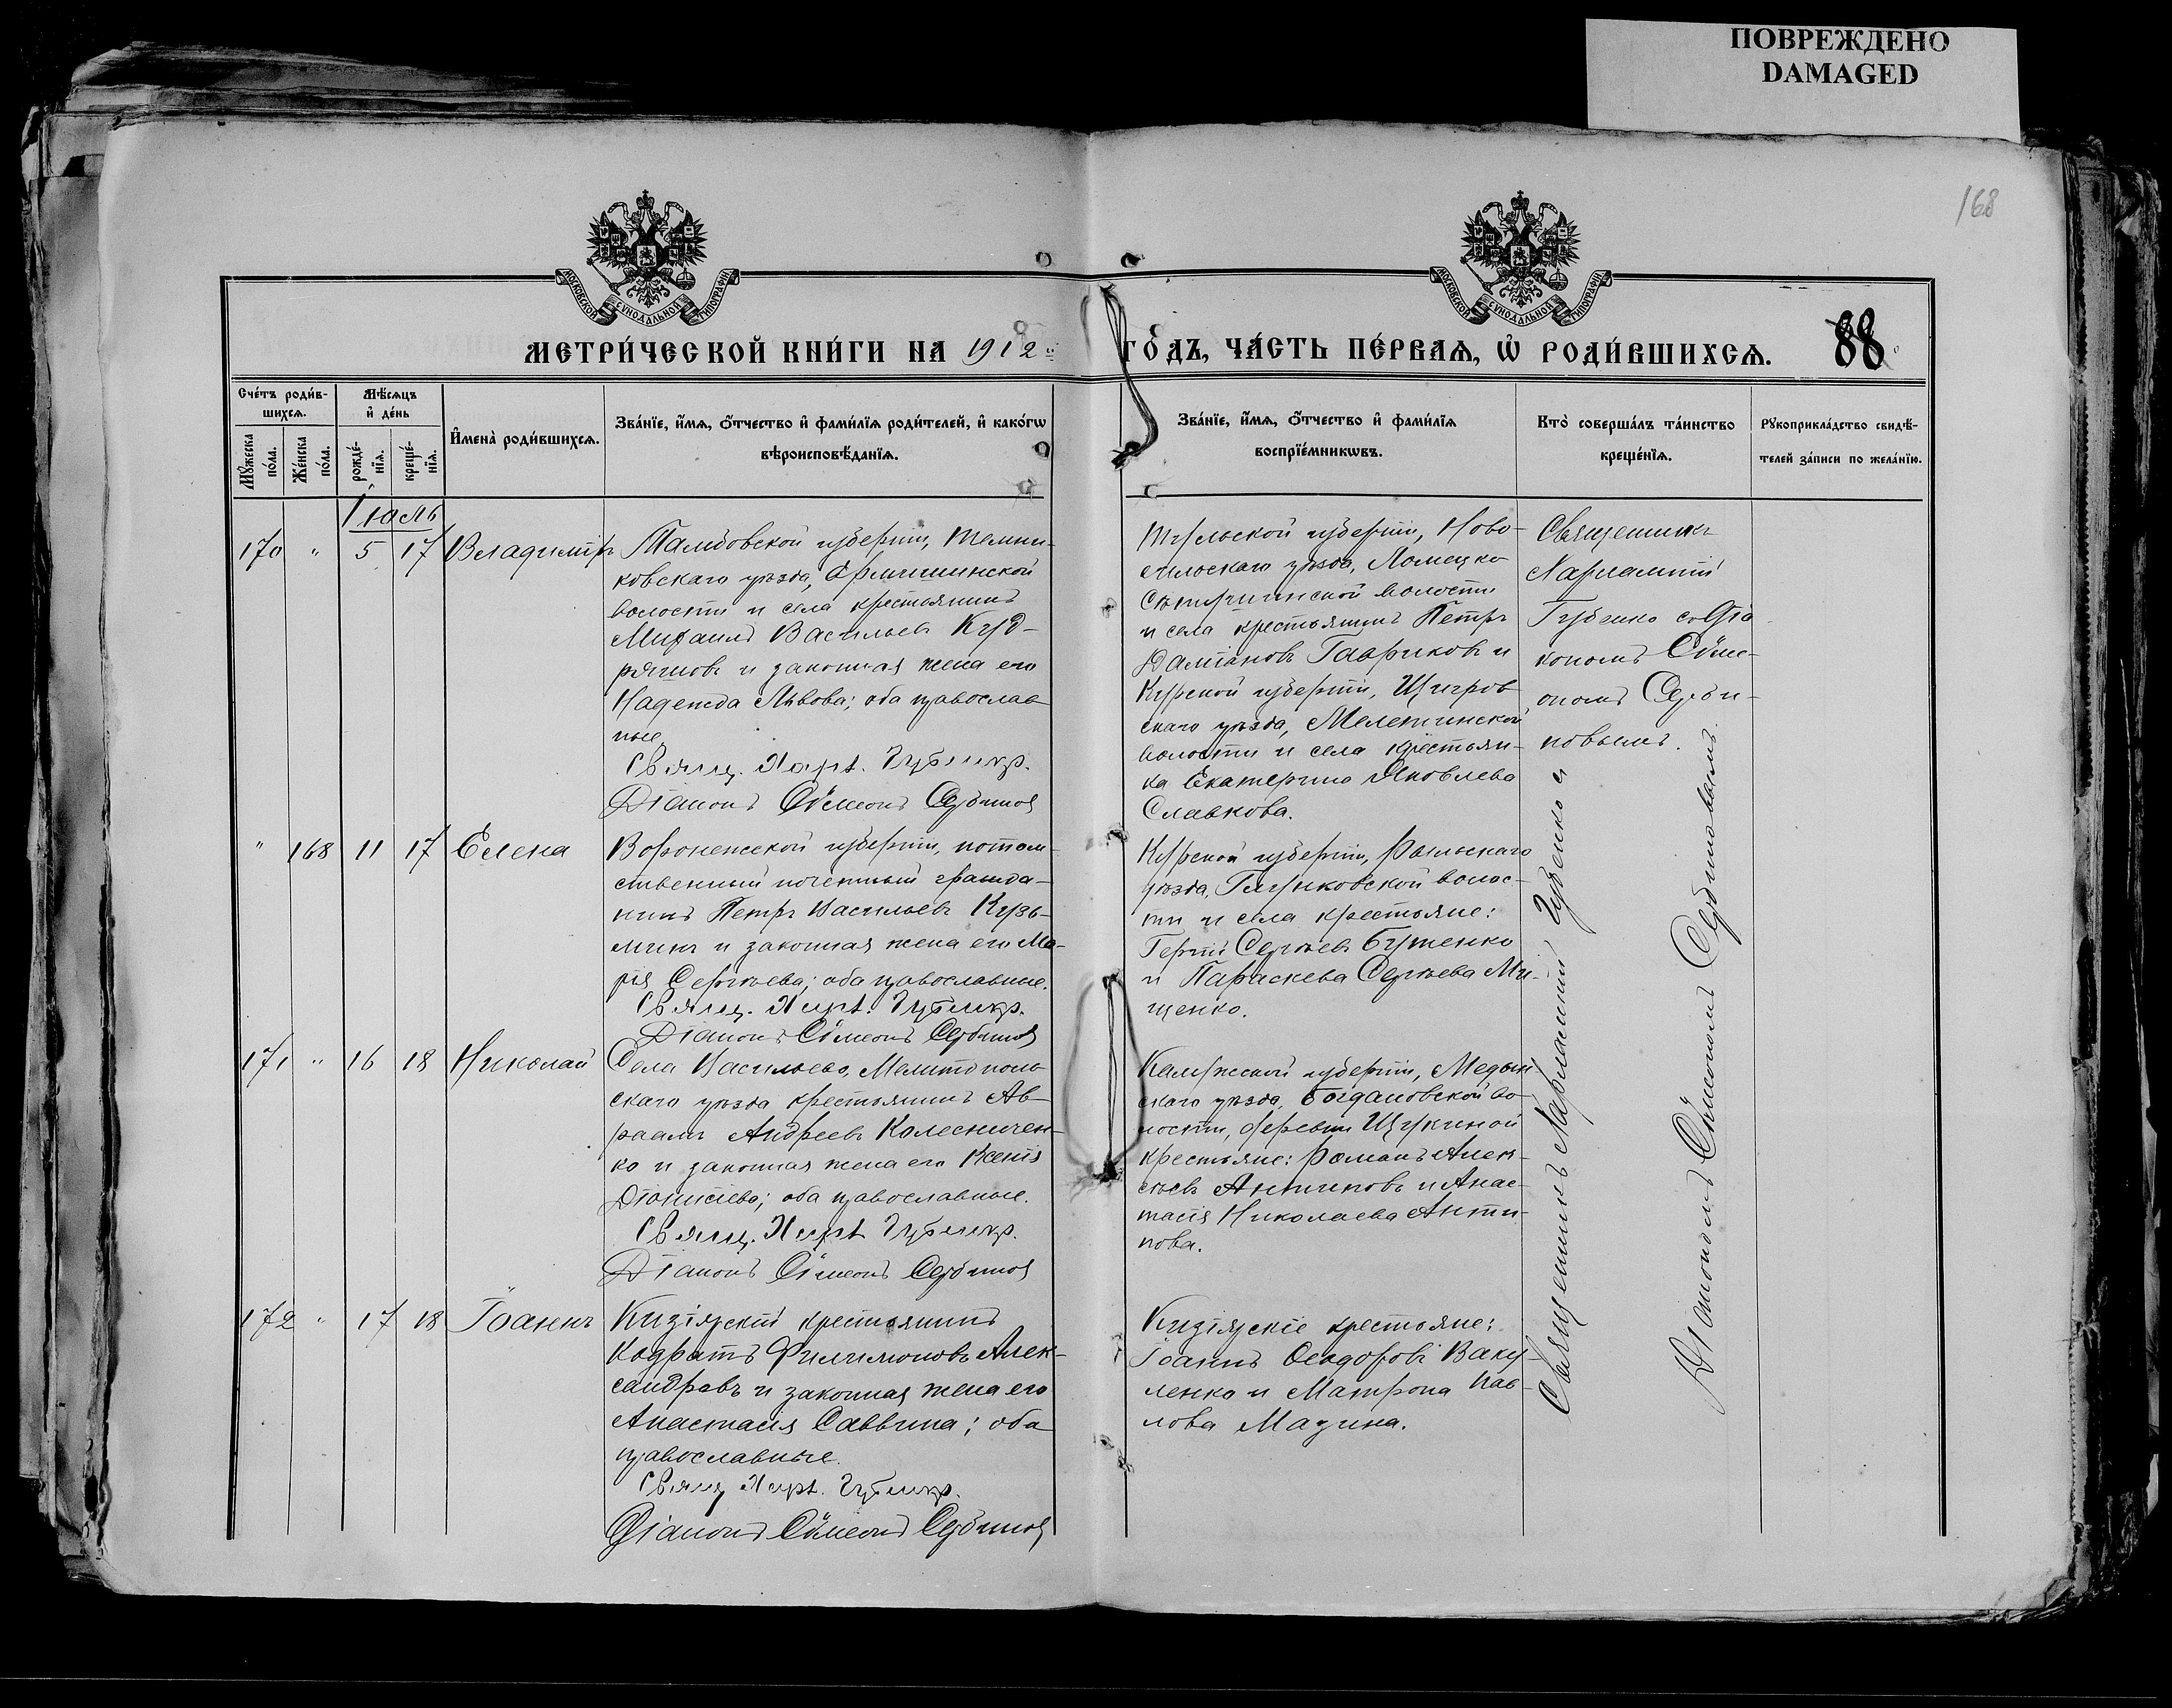 ПОВРЕЖДЕНО
DAMAGED
168
МОСКОВСКОЙ СѴНОДАЛЬНОЙ ТИПОГРАФІИ
МОСКОВСКОЙ СѴНОДАЛЬНОЙ ТИПОГРАФІИ
МЕТРИ́ЧЕСКОЙ КНИ́ГИ НА 1912 й
ГО́ДЪ, ЧА́СТЬ ПЕ́РВАѦ, Ѽ РОДИ́ВШИХСѦ. 88
Сче́тъ роди́вшихсѧ.
Мꙋ́жеска по́ла.
Же́нска по́ла.
Мѣ́сѧцъ и҆ де́нь
рожде́нїѧ.
креще́нїѧ.
И҆мена̀ роди́вшихсѧ.
Зва́нїе, и҆́мѧ, ѻ҆́тчество и҆ фами́лїѧ роди́телей, и҆ како́гѡ
вѣроисповѣ́данїѧ.
Зва́нїе, и҆́мѧ, ѻ҆́тчество и҆ фами́лїѧ
воспрїе́мникѡвъ.
Кто̀ соверша́лъ та́инство
креще́нїѧ.
Рꙋкоприкла́дство свидѣ́-
телей за́писи по жела́нїю.
Іюль
170 " 5 17 Владиміръ
Тамбовской губерніи, Темни-
ковскаго уѣзда,
волости и села крестьянинъ
Михаилъ Васильевъ Куд-
ряшовъ и законная жена его
Надежда Львова; оба православ
ные.
Свящ. Харл. Губенко.
Діаконъ Сѵмеонъ Сербиновъ
Тульской губерніи, Ново-
сильскаго уѣзда, Ломецко
волости
и села крестьянинъ Петръ
Даміановъ Гавриковъ и
Курской губерніи, Щигров
скаго уѣзда, Мелехинской
волости и села крестьян-
ка Екатерина Яковлева
Славкова.
Священникъ
Харлампій
Губенко съ діа
кономъ Сѵме-
ономъ Серби-
новымъ.
" 168 11 17 Елена
Воронежской губерніи, потом-
ственный почетный гражда-
нинъ Петръ Васильевъ Кузь-
минъ и законная жена его Ма-
рія Сергѣева; оба православные.
Свящ. Харл. Губенко.
Діаконъ Сѵмеонъ Сербиновъ
Курской губерніи, Рыльскаго
уѣзда, Глушковской волос-
ти и села крестьяне:
Сергѣевъ Бутенко
и Параскева Сергѣева Ми-
щенко.
171 " 16 18 Николай
Села Васильева, Мелитополь
скаго уѣзда крестьянинъ Ав-
раамъ Андреевъ Колесничен-
ко и законная жена его Ксенія
Діонисіева; оба православные.
Свящ. Харл. Губенко.
Діаконъ Сѵмеонъ Сербиновъ
Калужской губерніи, Медын
скаго уѣзда, Богдановской во-
лости, деревни Щукиной
крестьяне: Романъ Алек-
сѣевъ Антиповъ и Анас-
тасія Николаева Анти-
пова.
172 " 17 18 Іоаннъ
Кизіярскій крестьянинъ
Кодратъ Филимоновъ Алек-
сандровъ и законная жена его
Анастасія Саввина; оба
православные.
Свящ Харл. Губенко.
Діаконъ Сѵмеонъ Сербиновъ
Кизіярскіе крестьяне:
Іоаннъ ѲеодоровъВаку-
ленко и Матрона Пав-
лова Мазина.
Священникъ Харлампій Губенко и
Діакономъ Сѵмеономъ Сербиновымъ